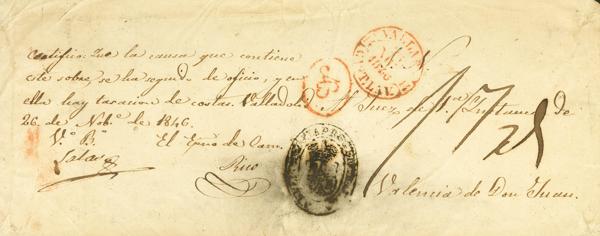 Certifico: Que la causa que contiene
este sobre, se ha seguido de oficio, y en
ella hay tasacion de costas. Vallad.
26 de Nob.e de 1846.
V.o B.o
El Esno de Cam.
Rico
Al Juez de 1.a Instancia de
Valencia de Don Juan.